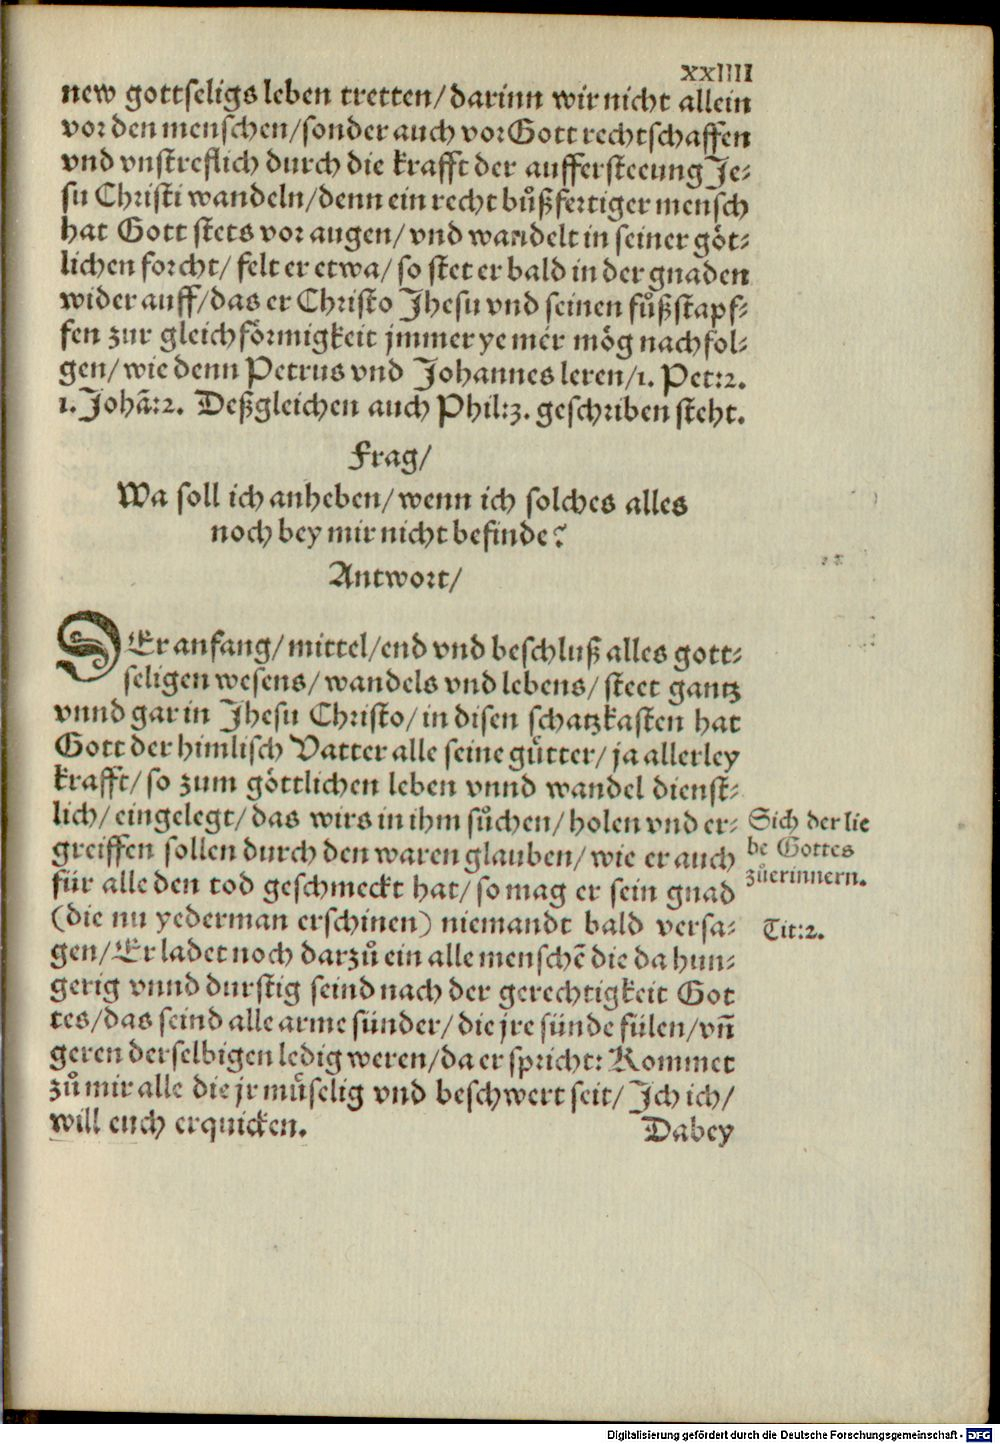 xxIIII
new gottseligs leben tretten/darinn wir nicht allein
vor den menschen/sonder auch vor Gott rechtschaffen
vnd vnstreflich durch die krafft der auffersteeung Je-
su Christi wandeln/denn ein recht bůßfertiger mensch
hat Gott stets vor augen/ vnd wandelt in seiner göt-
lichen forcht/ felt er etwa/ so stet er bald in der gnaden
wider auff/das er Christo Jhesu vnd seinen fůßstapf-
fen zur gleichförmigkeit jmmer ye mer mög nachfol-
gen/ wie denn Petrus vnd Johannes leren/1. Pet:2.
1. Johã:2. Deßgleichen auch Phil:3. geschriben steht.
Frag/
Wa soll ich anheben/ wenn ich solches alles
noch bey mir nicht befinde?
Antwort/
DEr anfang/ mittel/end vnd beschluß alles gott-
seligen wesens/ wandels vnd lebens/ steet gantz
vnnd gar in Jhesu Christo/ in disen schatzkasten hat
Gott der himlisch Vatter alle seine gütter/ ja allerley
krafft/ so zum göttlichen leben vnnd wandel dienst-
lich/ eingelegt/ das wirs in ihm sůchen/ holen vnd er-
greiffen sollen durch den waren glauben/ wie er auch
für alle den tod geschmeckt hat/ so mag er sein gnad
(die nu yederman erschinen) niemandt bald versa-
gen/ Er ladet noch darzů ein alle menschẽ die da hun-
gerig vnnd durstig seind nach der gerechtigkeit Got
tes/das seind alle arme sünder/ die jre sünde fülen/ vñ
geren derselbigen ledig weren/ da er spricht: Kommet
zů mir alle die jr müselig vnd beschwert seit/ Ich ich/
will euch erquicken.
Dabey
Sich der lie
be Gottes
zůerinnern.
Tit:2.
Digitalisierung gefördert durch die Deutsche Forschungsgemeinschaft - DFG